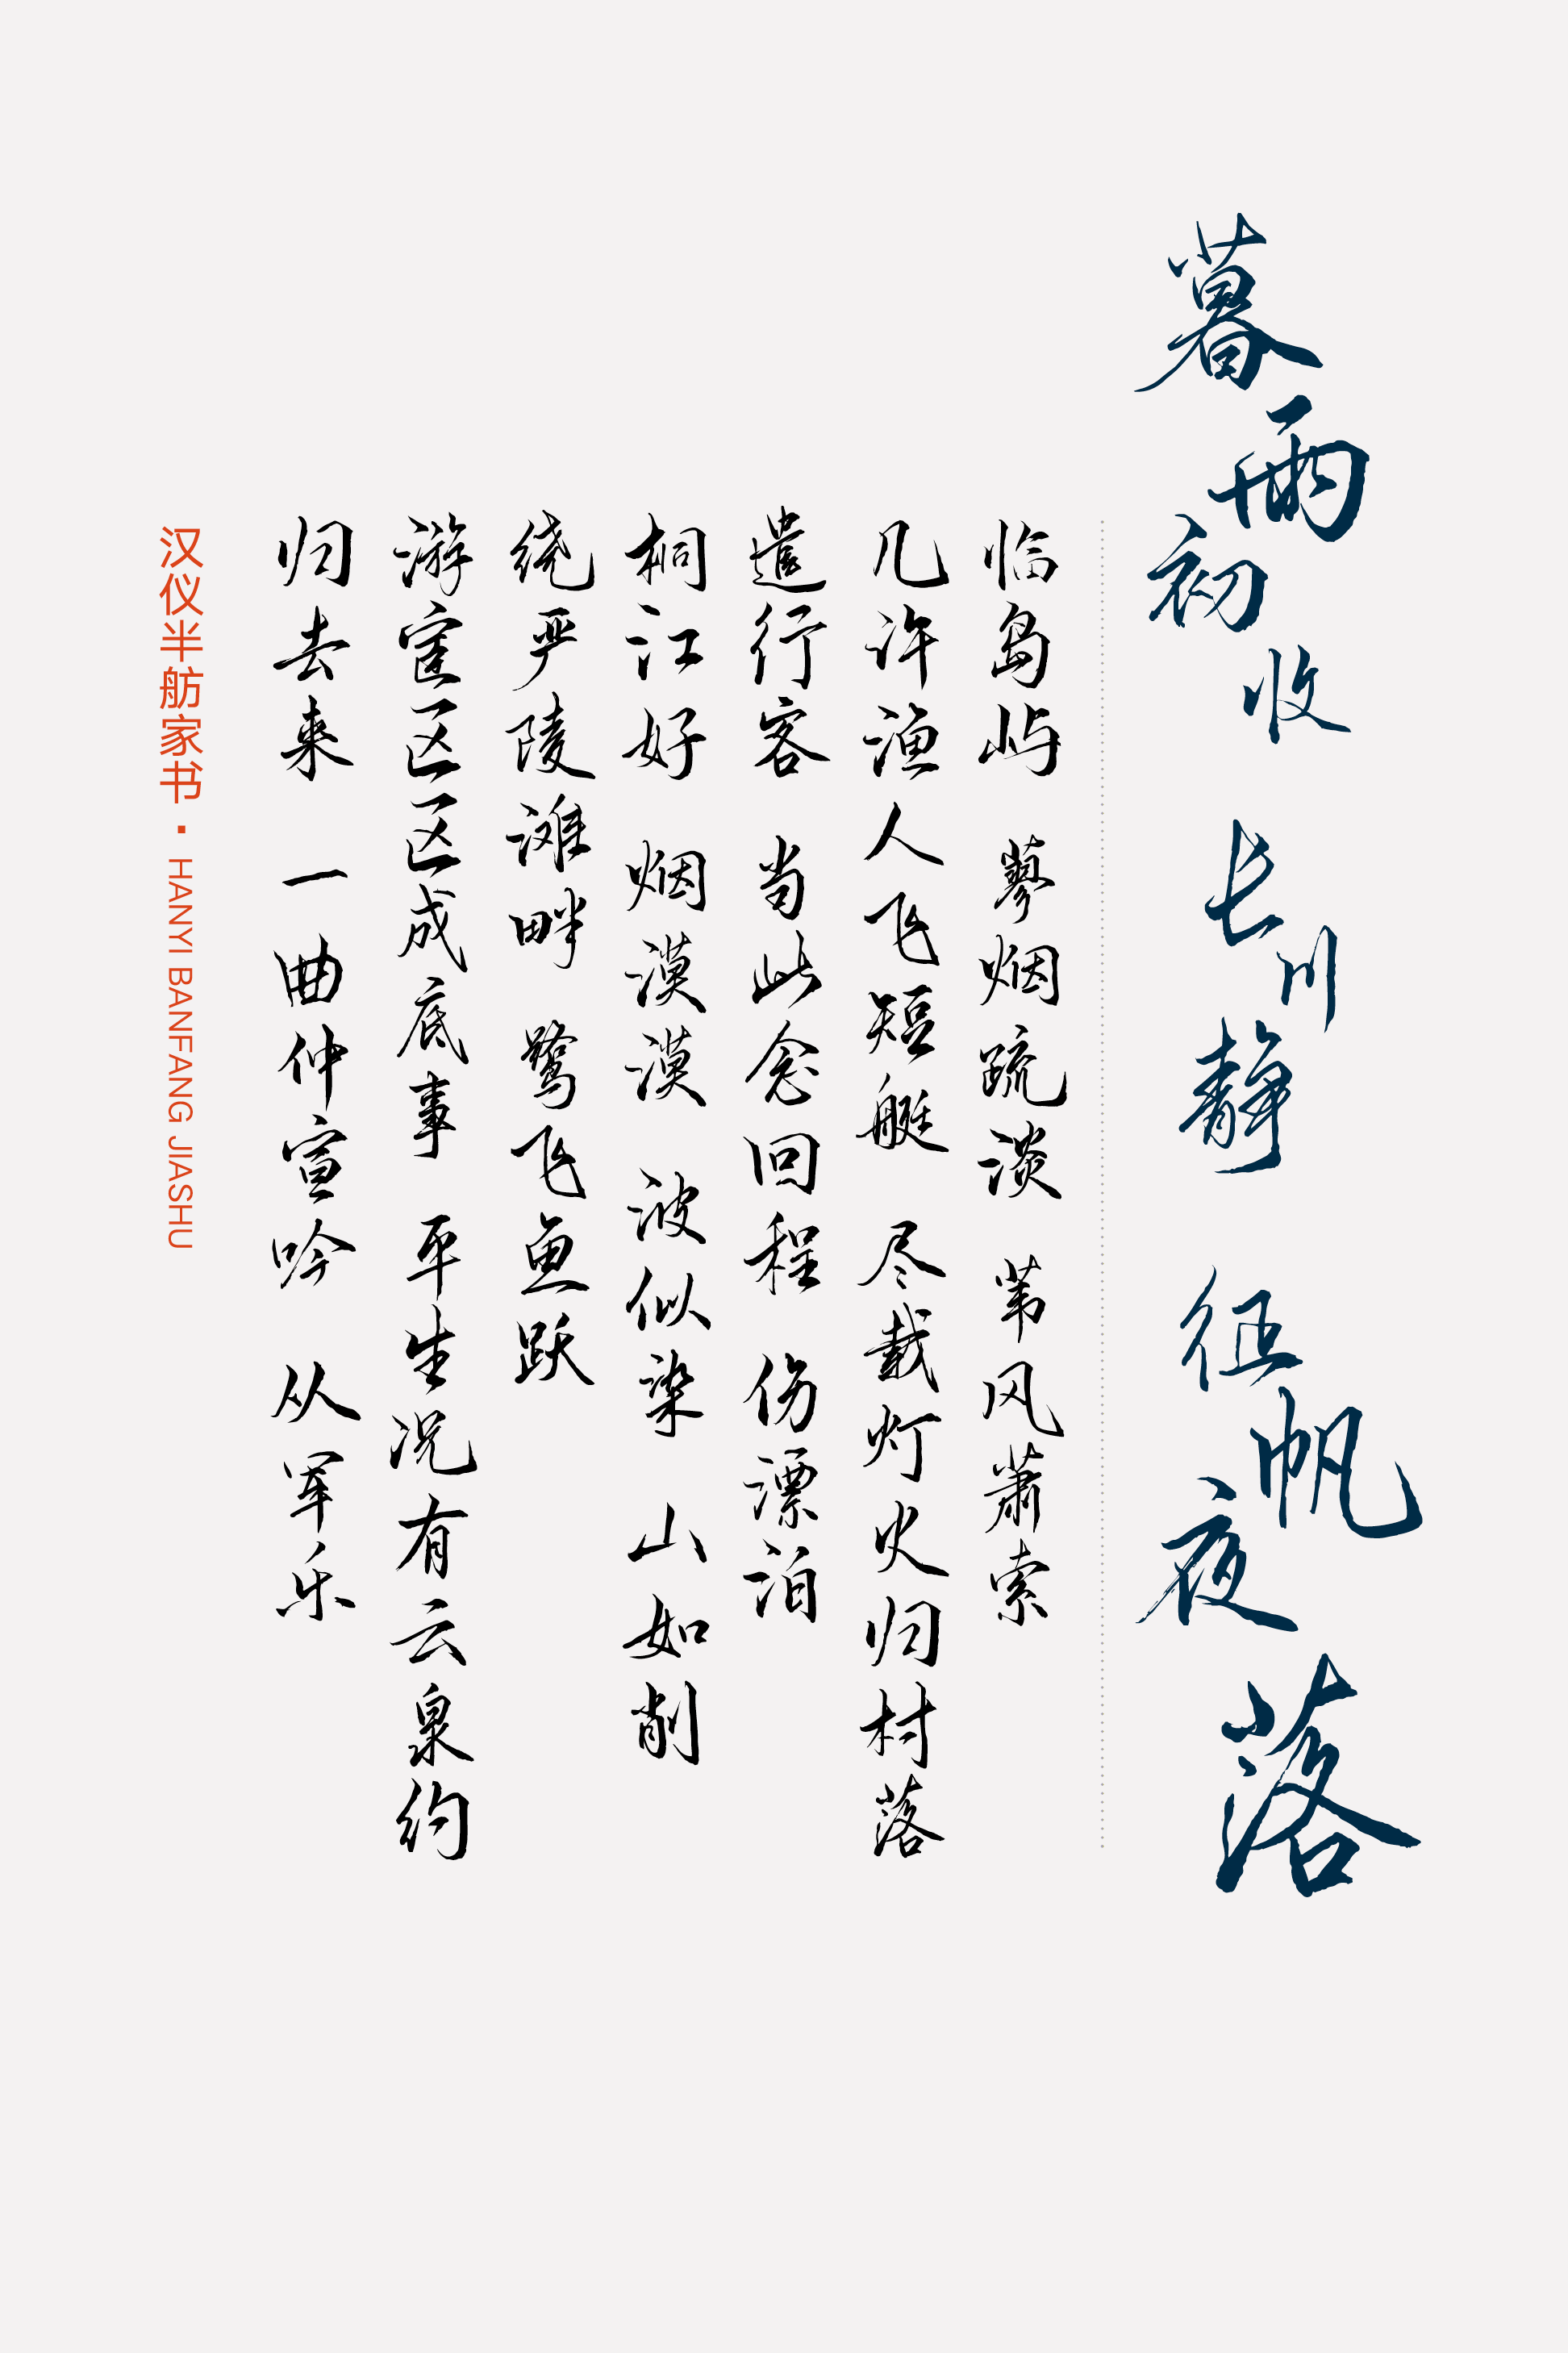 暮雨初收 长川静 征帆夜落
临岛屿 蓼烟疏淡 苇风萧索
几许渔人飞短艇 尽载灯火归村落
遣行客 当此念回程 伤漂泊
桐江好 烟漠漠 波似染 山如削
绕严陵滩畔 鹭飞鱼跃
游宦区区成底事 平生况有云泉约
归去来 一曲仲宣吟 从军乐
汉仪半舫家书·HANYI BANFANG JIASHU